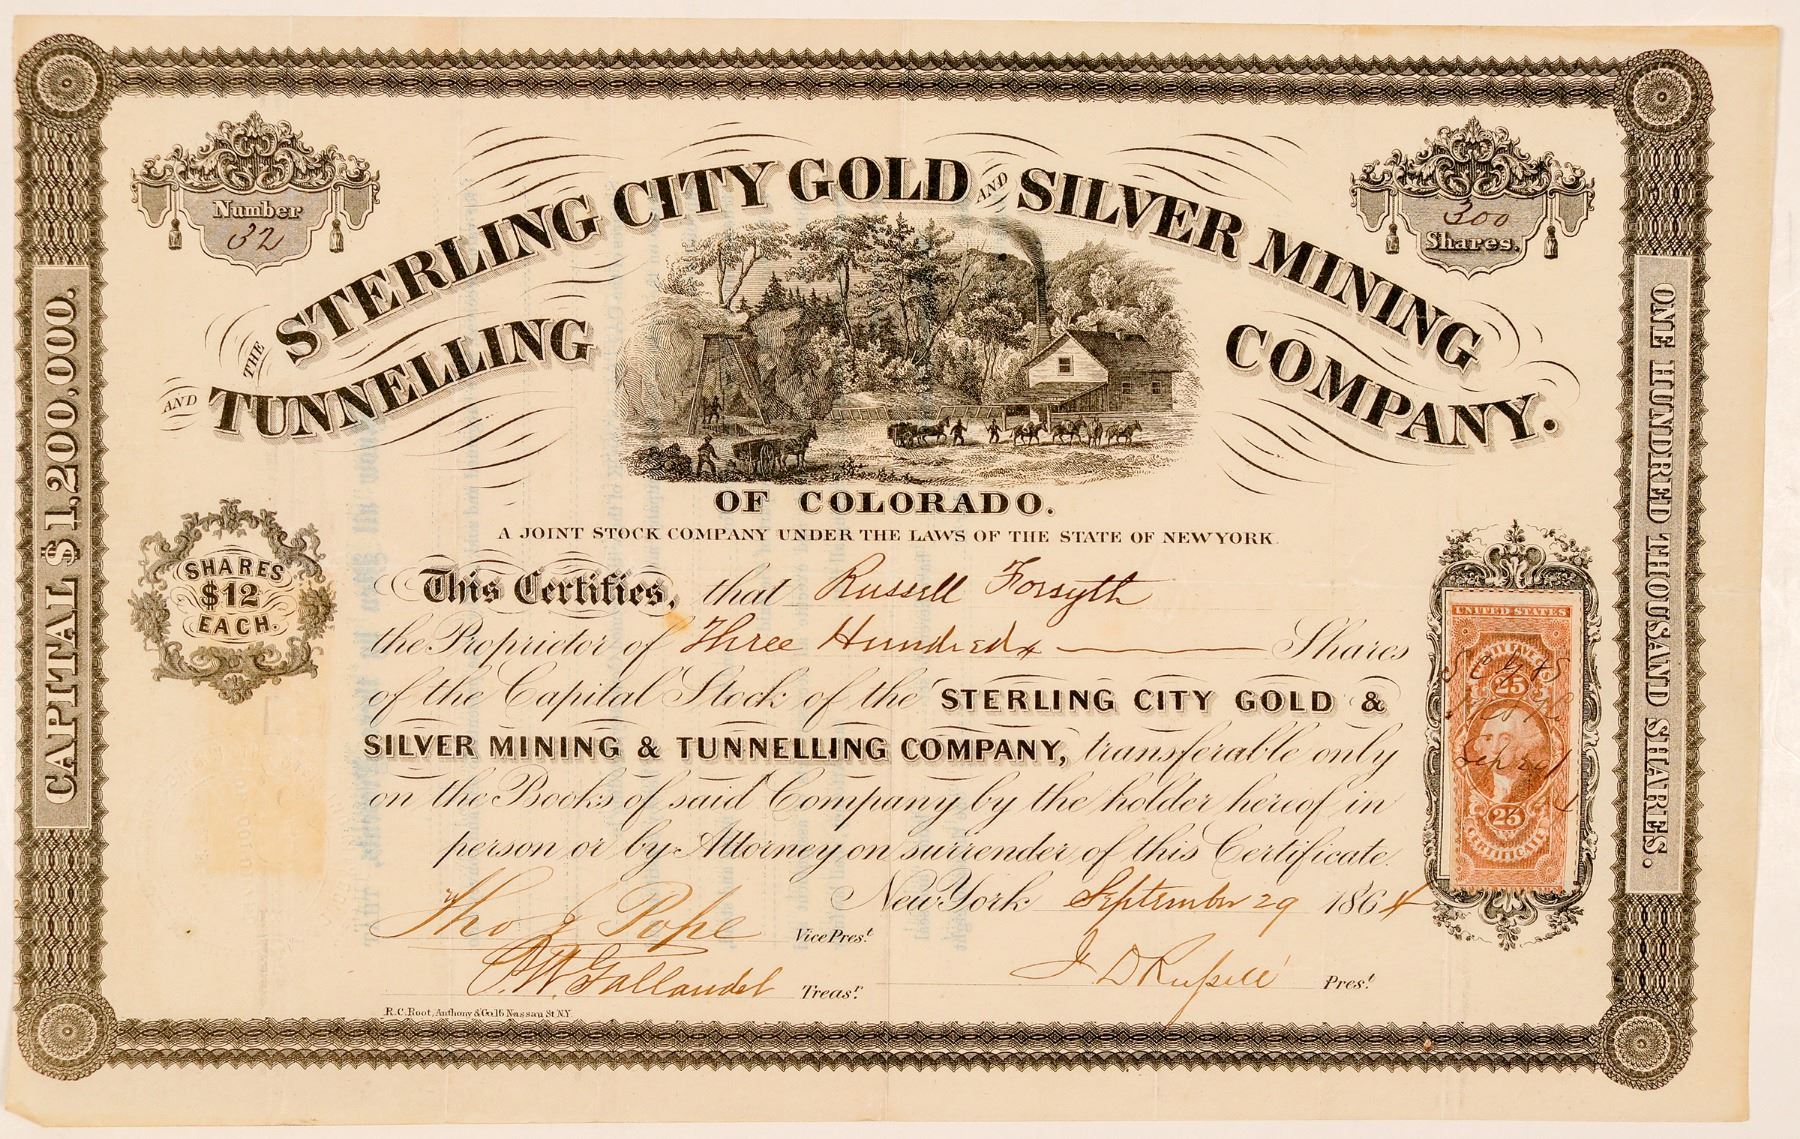 Number
32
300
Shares.
THE STERLING CITY GOLD AND SILVER MINING
AND TUNNELLING COMPANY.
OF COLORADO.
A JOINT STOCK COMPANY UNDER THE LAWS OF THE STATE OF NEW YORK.
CAPITAL $1,200,000.
ONE HUNDRED THOUSAND SHARES.
SHARES
$12
EACH.
This Certifies, that Russell Forsyth
the Proprietor of Three Hundred Shares
of the Capital Stock of the STERLING CITY GOLD &
SILVER MINING & TUNNELLING COMPANY, transferable only
on the Books of said Company by the holder hereof in
person or by Attorney on surrender of this Certificate.
New York September 29 1864
Tho J Pope Vice Prest.
P. W. Gallaudet Treasr.
J D Russell Prest.
R.C. Root, Anthony & Co. 16 Nassau St N.Y.
UNITED STATES
25
S C G & S
Sep 29/
4
25
CERTIFICATE